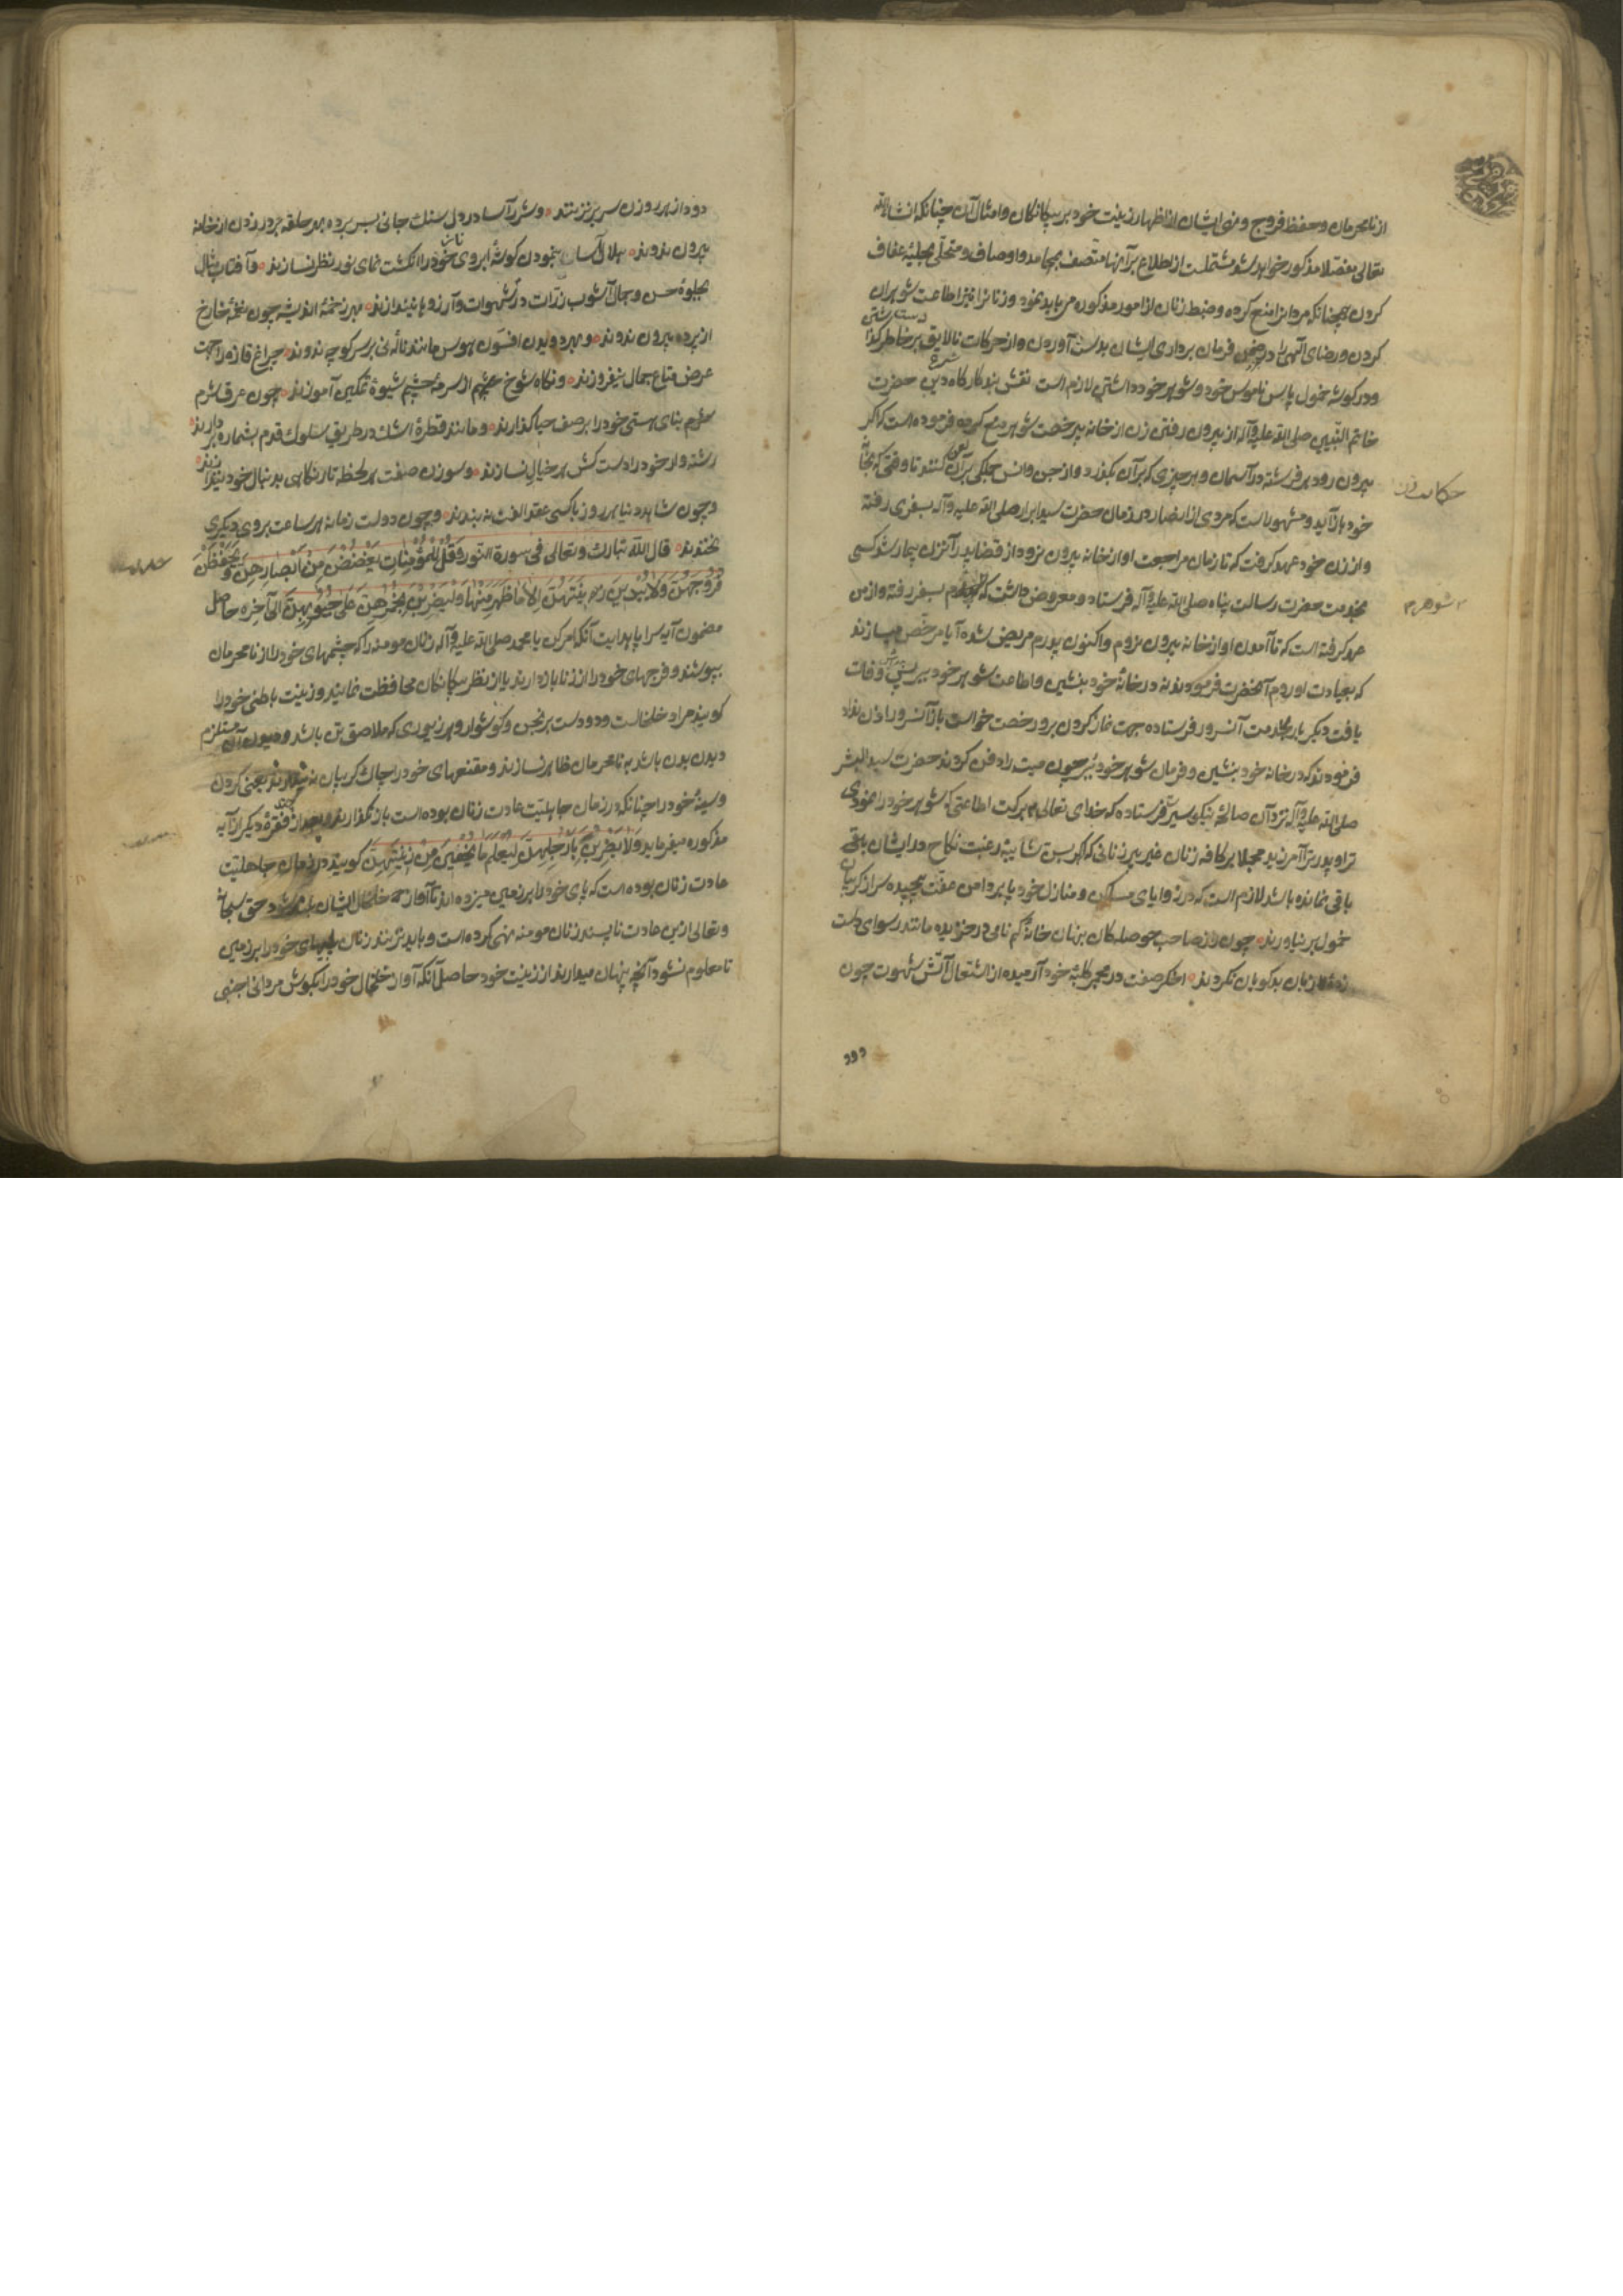 از نامحرمان و حفظ فروج و نهی ایشان از اظهار زینت خود بر بیکانکان و امثال آن چنانکه انشاالله
تعالی مفصلا مذکور خواهد شد مشتملست از اطلاع بر آنها متصف بمحامد و اوصاف و متحلی بحلیهٔ عفاف
کردن همچنانکه مردانرا منع کرده و ضبط زنان از امور مذکوره می باید نمود و زنانرا نیز اطاعت شوهران
کردن و رضای آلهی را در ضمن فرمان برداری ایشان بدست آوردن و از حرکات نالایق بر خاطر
و در کوشه خمول پاس ناموس خود و شوهر خود داشتن لازم است نقش بند کارکاه دین حضرت
خاتم النبیین صلی الله علیه وآله از بیرون رفتن زن از خانه بیرخصت شوهر منع کرده فرموده است که اکر
بیرون رود هر فرشته در آسمان و هر چیزی که بر آن بکذرد و از جن و انس جملکی بر آن لعن کنند تا وقتی که بخانهٔ
خود باز آید و مشهور است که مردی از انصار در زمان حضرت سید ابرار صلی الله علیه وآله بسفری رفته
و از زن خود عهد کرفت که تا زمان مراجعت او از خانه بیرون نرود از قضا پدر آنزن بیمار شد کسی
بخدمت حضرت رسالت پناه صلی الله علیه وآله فرستاد و معروض داشت که شوهرم بسفر رفته و از من
عهد کرفته است که تا آمدن او از خانه بیرون نروم و اکنون پدرم مریض شده آیا مرخص میسازند
که بعیادت او روم آنحضرت فرمودند نه در خانهٔ خود بنشین و اطاعت شوهر خود وفات
یافت دیکر بار بخدمت آنسرور فرستاده جهت نماز کردن بر و رخصت خواست باز آنسرور اذن نداد
فرمودند که در خانه خود بنشین و فرمان شوهر خود بر چون میت را دفن کردند حضرت سید البشر
صلی الله علیه وآله نزد آن صالحهٔ نیکو سیرت فرستاده که خدای تعالی ببرکت اطاعتی که شوهر خود را نمودی
ترا و پدر ترا آمرزید مجملا بر کافه زنان غیر پیر زنانی که اکبر سن شاییبه رغبت نکاح در ایشان
باقی نمانده باشد لازم است که در زوایای مساکن و منازل خود پا بر دامن عفت پیچیده سر از کریبان
خمول بر نیاورند چون راز صاحب حوصلکان پنهان خانهٔ کم نامی در خزیده مانند رسوای دست
زبان بدکویان نکردند اخکر صفت در مجمر کلبهٔ خود آرمیده از اشتعال آتش شهوت چون
دود
حکایت زن
شوهرم
دود از هر روزن سر بر نزنند و شرر آسا در دل سنک جانی بسر برده بهر حلقه بر در زدن از خانه
بیرون ندوند هلال آسا بنمودن کوشهٔ ابروی خود را انکشت نمای نظر نسازند و آفتاب مثال
بجلوهٔ حسن و جمال آشوب ذرات در شهوات و آرزوها نیندازند بهر زخمهٔ اندیشه چون نغمهٔ خارج
از پرده بیرون ندوند و بهر دویدن افسون هوس مانند نالهٔ نی بر سر کوچه ندوند چراغ غازه را جهت
عرض متاع جمال نیفروزند و نکاه شوخ چشم از سرمهٔ چشم شیوهٔ تمکین آموزند چون عرق شرم
بنای هستی خود را بر صف حیا کذارند و مانند قطرهٔ اشک در طریق سلوک قدم بشماره بردارند
رشته وار خود را دست کش هر خیال نسازند و سوزن صفت هر لحظه تار نکاهی بدنبال خود نیندازند
و چون شاهد دنیا هر روز با کسی عقد الفت نه بندند و چون دولت زمانه هر ساعت بروی دیکری
نخندند قال الله تبارک وتعالی فی سورة النور وَقُل لِلمؤمِناتِ یَغضُضنَ مِن اَبصارِهِنَّ وَیَحفَظنَ
فُروجَهُنَّ وَلا یُبدینَ زینَتَهُنَّ اِلّا ما ظَهَرَ مِنها وَلیَضرِبنَ بِخُمُرِهِنَّ عَلی جُیوبِهِنَّ الی آخره حاصل
مضمون آیه سراپا هدایت آنکه امر کن یا محمد صلی الله علیه وآله زنان مومنه را که چشمهای خود را از نامحرمان
بپوشند و فرجهای خود را از زنا باز دارند یا از نظر بیکانکان محافظت نمایند و زینت باطنی خود را
کویند مراد خلخالست و دو دست برنجن و کوشوار و هر زیوری که ملاصق بدن باشد و دیدن آن مستلزم
دیدن بدن باشد به نامحرمان ظاهر نسازند و مقنعهای خود را بچاک کریبان یعنی کردن
و سینهٔ خود را چنانکه در زمان جاهلیت عادت زنان بوده است باز نکذارند و بعد از فقرهٔ دیکر از آیه
مذکوره میفرماید وَلا یَضرِبنَ بِاَرجُلِهِنَّ لِیُعلَمَ ما یُخفینَ مِن زینَتِهِنَّ کویند در زمان جاهلیت
عادت زنان بوده است که پای خود را بر زمین میزده اند تا آواز خلخال ایشان شود حق سبحانه
و تعالی ازین عادت ناپسند زنان مومنه نهی کرده است و باید نزنند زنان پایهای خود را بر زمین
تا معلوم نشود آنچه پنهان میدارند از زینت خود حاصل آنکه آواز خلخال خود را بکوش مردان اجنبی